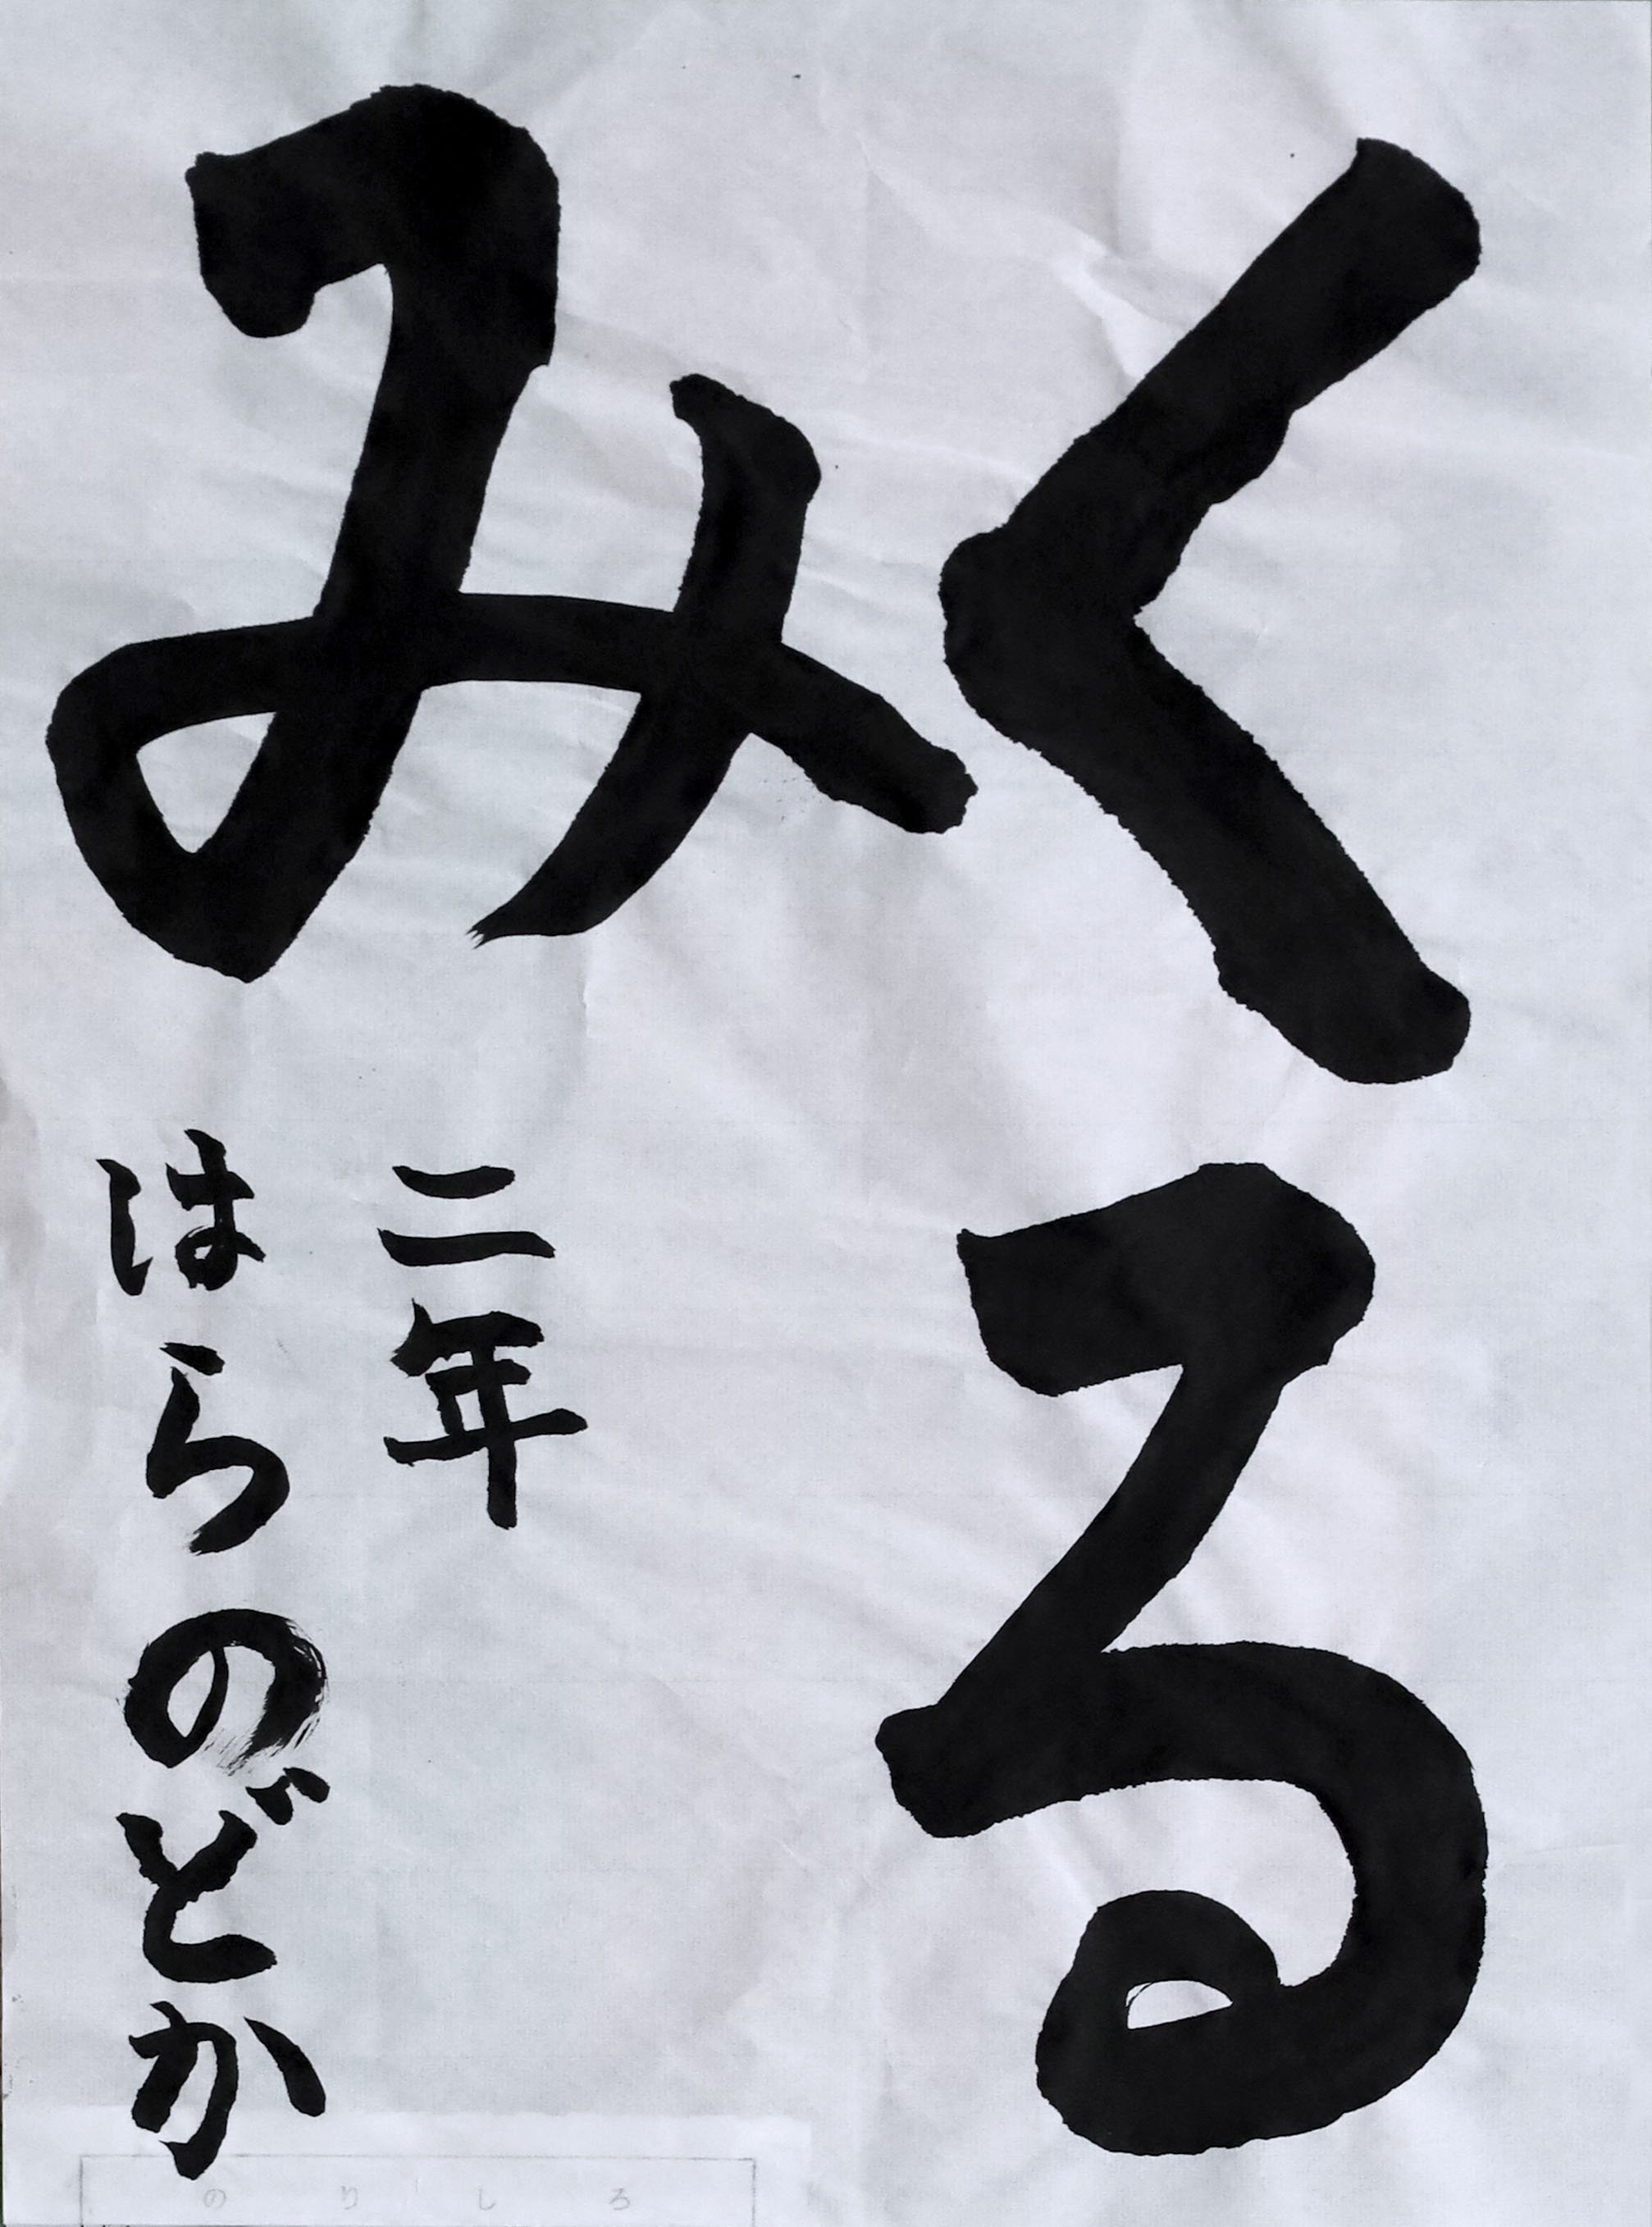 くる
み
二年
はらのどか
のりしろ